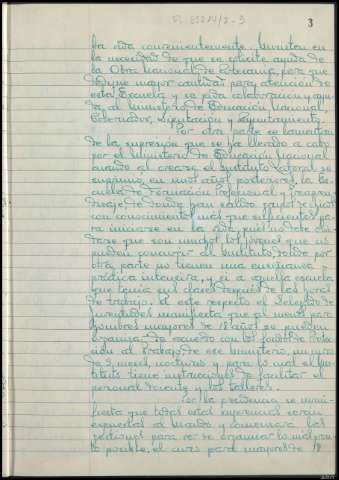 3
la vida convenientemente. Insisten en
la necesidad de que se solicite ayuda de
la Obra Nacional de Artesanía, para que
done mayor cantidad para atención de
esta Escuela y se pida colaboración y ayu-
da, al Ministerio de Educación Nacional,
Gobernador, Diputación y Ayuntamiento.
Por otra parte se lamentan
de la supresión que se ha llevado a cabo
por el Ministerio de Educación Nacional
cuando al crearse el Instituto Laboral se
suprimió, en unos años posteriores, la Es-
cuela de Formación Profesional
de donde han salido
con conocimientos más que suficientes pa-
ra iniciarse en la vida, pues no debe olvi-
darse que son muchos los jóvenes que no
pueden concurrir al Instituto, donde por
otra parte no tienen una enseñanza
práctica intensiva, y si a aquella escuela
que tenía sus clases después de las horas
de trabajo. A este respecto el Delegado de
Juventudes manifiesta que al menos para
hombres mayores de 18 años se pueden
organizar de acuerdo con los
de ese ministerio, un curso
de 3 meses, nocturno y para lo cual el Ins-
tituto tiene instrucciones de facilitar el
personal docente y los talleres.
Por la presidencia se mani-
fiesta que todas estas sugerencias serán
expuestas al Mando y comenzará las
gestiones para ver se organizar lo más pron-
to posible, el curso para mayores de 18